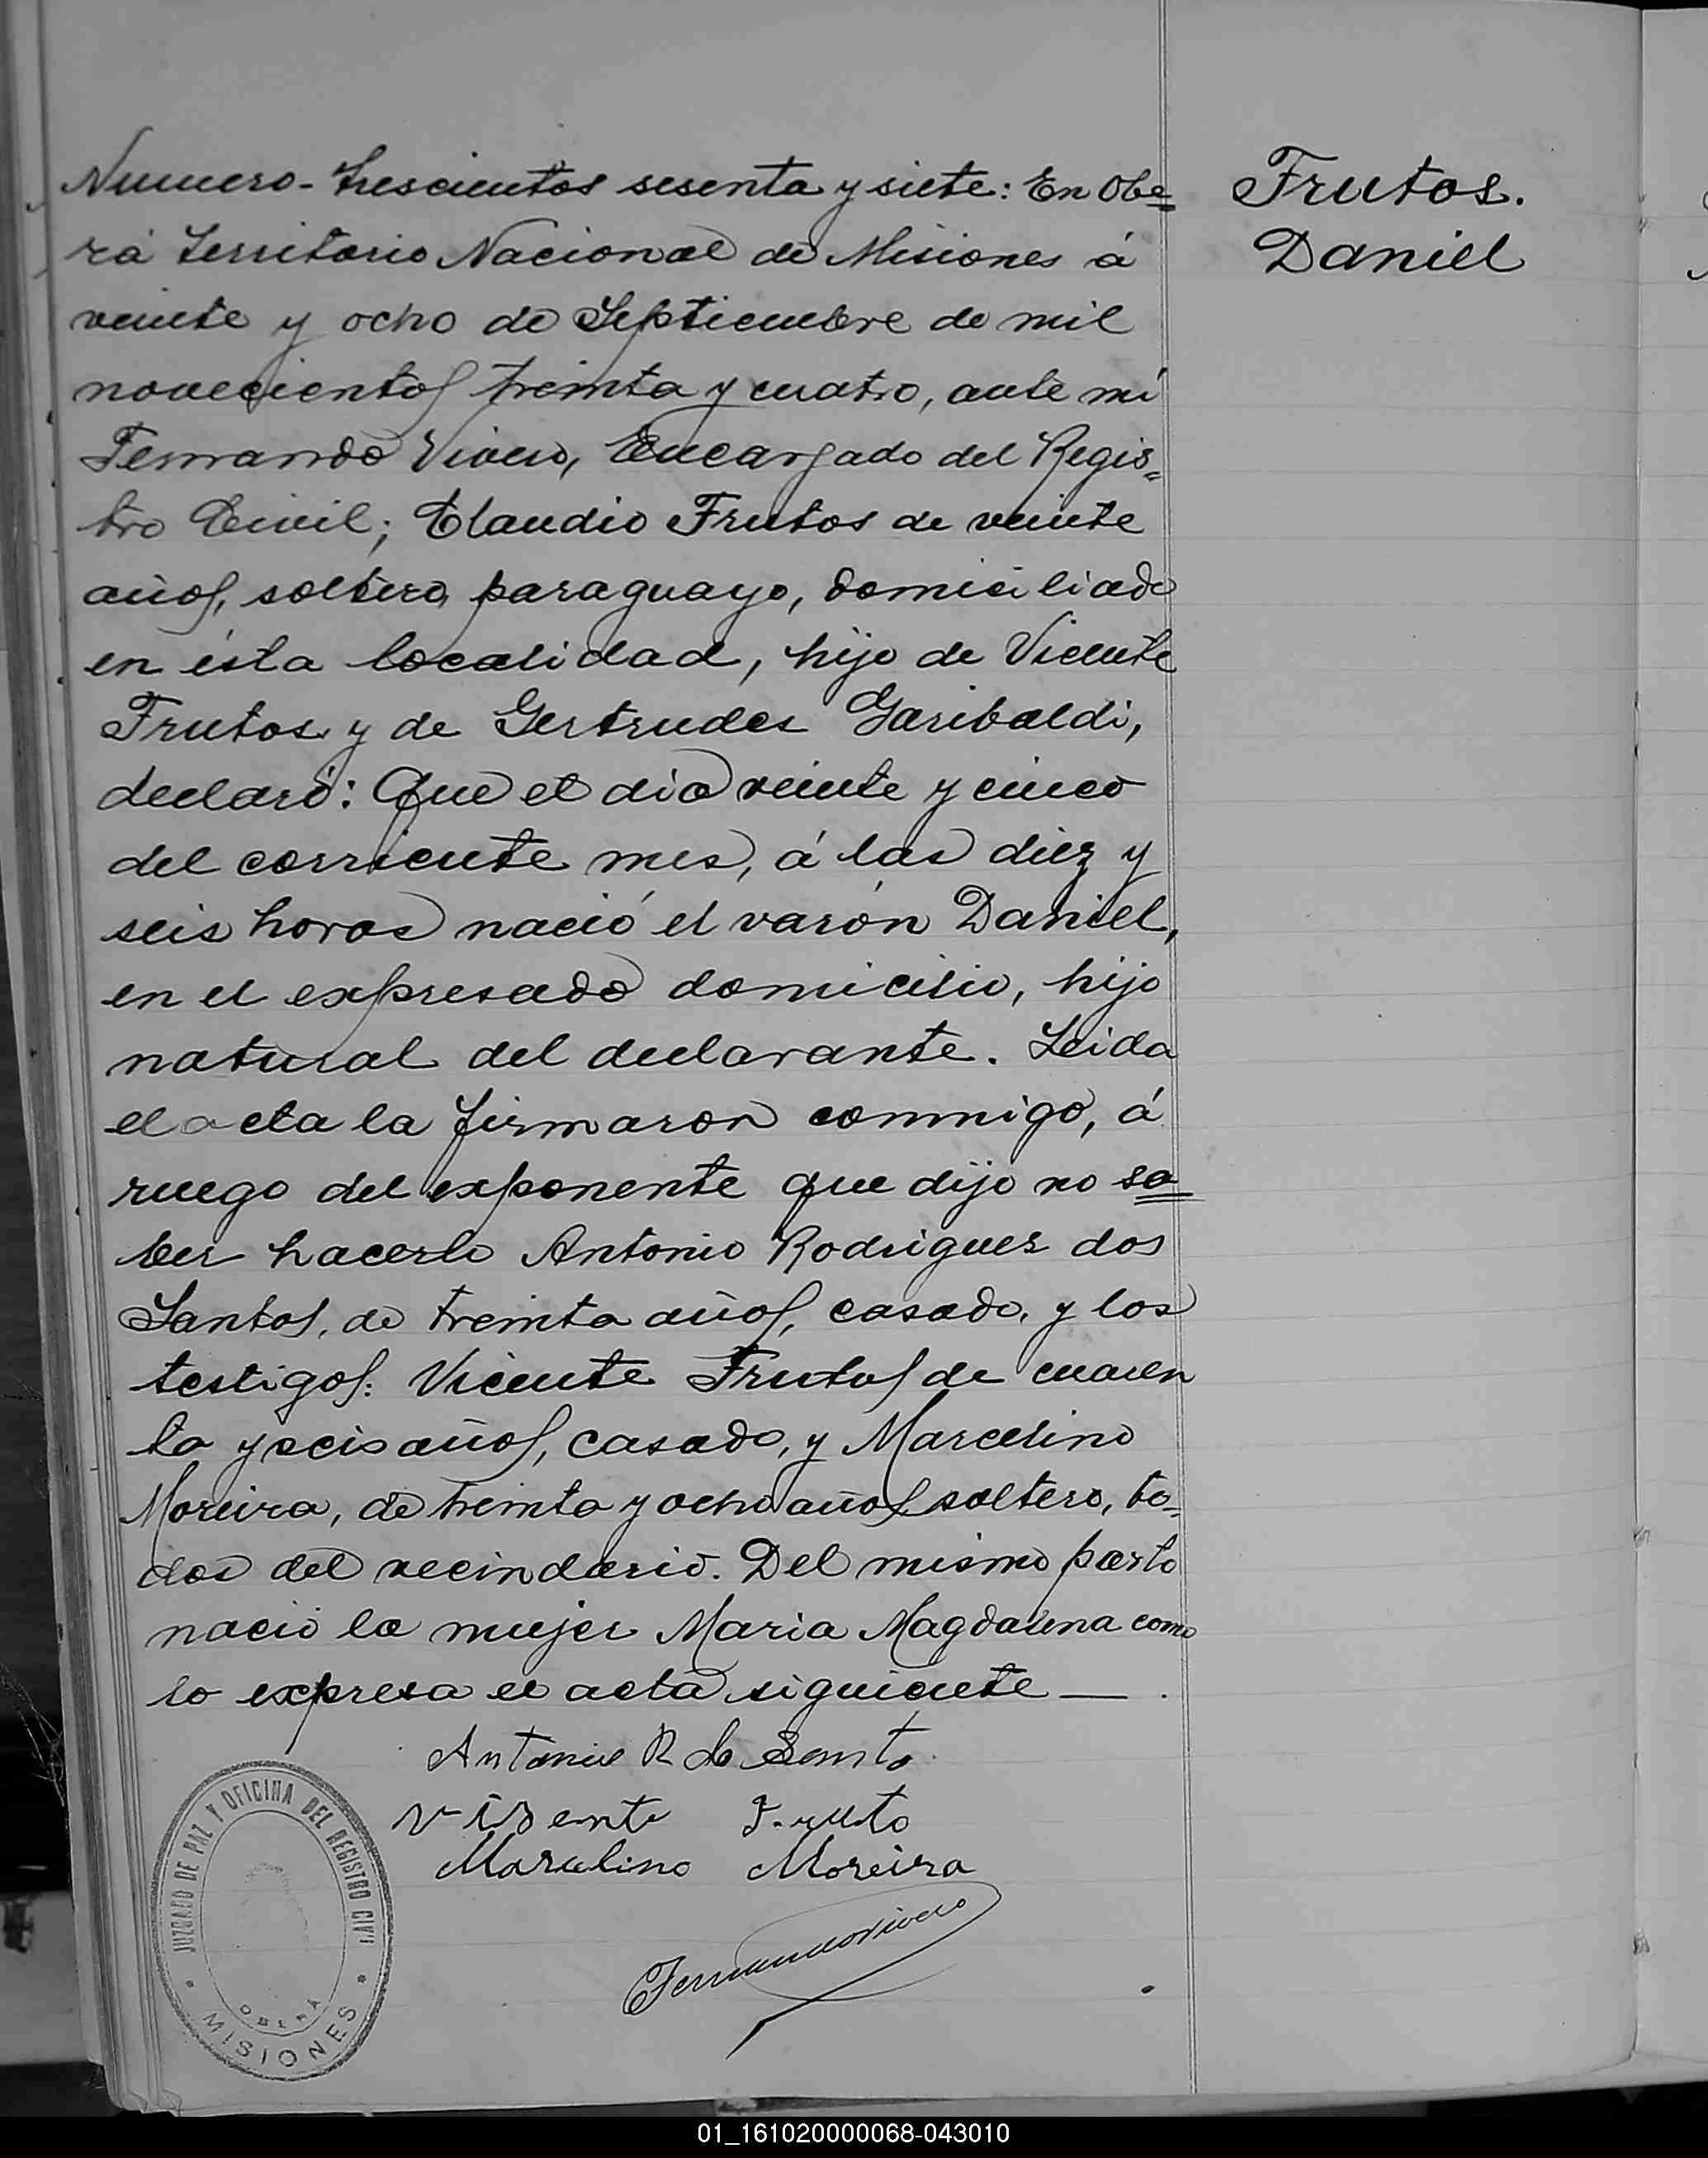 Numero - trescientos sesenta y siete: En Obe=
rá Territorio Nacional de Misiones á
veinte y ocho de Septiembre de mil
novecientos treinta y cuatro, ante mi
Fernando Vivero, Encargado del Regis=
tro Civil; Claudio Frutos de veinte
años, soltero, paraguayo, domiciliado
en ésta localidad, hijo de Vicente
Frutos y de Gertrudes Garibaldi,
declaró: Que el dia veinte y cinco
del corriente mes, á las diez y
seis horas nació el varón Daniel,
en el expresado domicilio, hijo
natural del declarante. Leida
el acta la firmaron conmigo, á
ruego del exponente que dijo no sa=
ber hacerlo Antonio Rodriguez dos
Santos, de treinta años, casado, y los
testigos: Vicente Frutos de cuaren
ta y seis años, casado, y Marcelino
Moreira, de treinta y ocho años soltero, to=
dos del vecindario. Del mismo parto
nació la mujer Maria Magdalena como
lo expresa el acta siguiente — .
Frutos.
Daniel
Antonio R do Santo
Visente Fruto
Marcelino Moreira
Fernando Vivero
JUZGADO DE PAZ Y OFICINA DEL REGISTRO CIVIL
OBERÁ
MISIONES
01_161020000068-043010